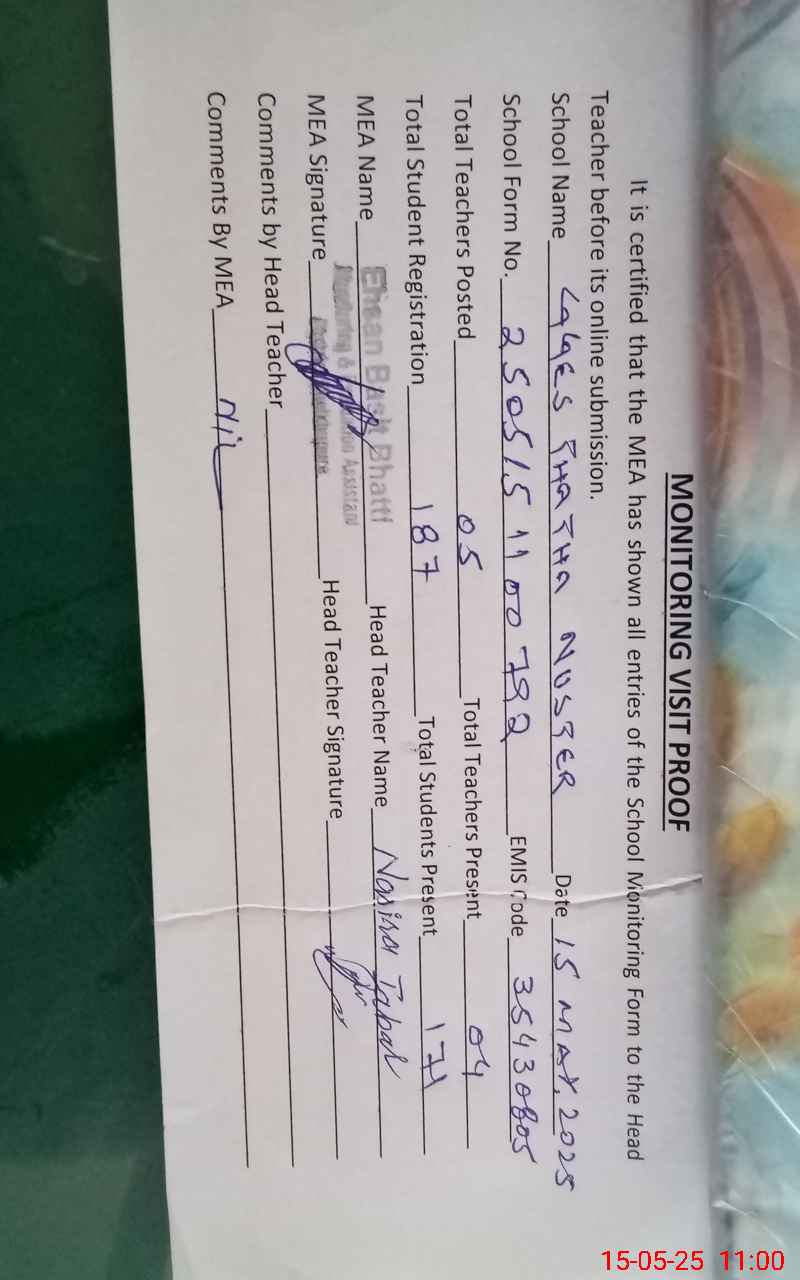 MONITORING VISIT PROOF
It is certified that the MEA has shown all entries of the School Monitoring Form to the Head
Teacher before its online submission.
School Name GGES THATHA NUSTER Date 15 MAY, 2025
School Form No. 250515 1100792 EMIS Code 35430805
Total Teachers Posted 05 Total Teachers Present 04
Total Student Registration 187 Total Students Present 171
MEA Name Ehsan Basit Bhatti Head Teacher Name Nasira Iqbal
Monitoring & Assistant
MEA Signature Head Teacher Signature
Comments by Head Teacher
Comments By MEA Nil
15-05-25 11:00